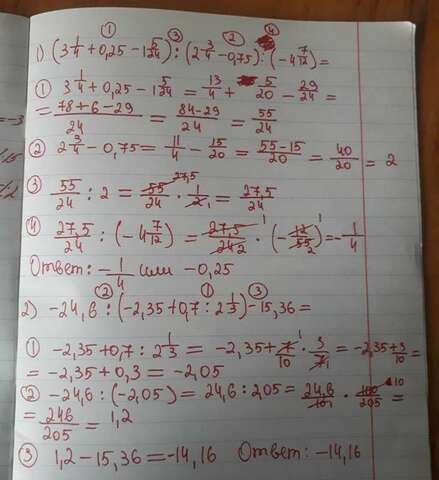 ① ③ ② ④
1) (3 1/4 + 0,25 - 1 5/24) : (2 3/4 - 0,75) : (-4 7/12) =
① 3 1/4 + 0,25 - 1 5/24 = 13/4 + 5/20 - 29/24 =
= (78 + 6 - 29)/24 = (84 - 29)/24 = 55/24
② 2 3/4 - 0,75 = 11/4 - 15/20 = (55 - 15)/20 = 40/20 = 2
③ 55/24 : 2 = 55/24 27,5 · 1/2 1 = 27,5/24
④ 27,5/24 : (-4 7/12) = 27,5/24 1 2 · (-12/55 1 2) = -1/4
Ответ: -1/4 или -0,25
② ① ③
2) -24,6 : (-2,35 + 0,7 : 2 1/3) - 15,36 =
① -2,35 + 0,7 : 2 1/3 = -2,35 + 7/10 1 · 3/7 1 = -2,35 + 3/10 =
= -2,35 + 0,3 = -2,05
② -24,6 : (-2,05) = 24,6 : 2,05 = 24,6/10 1 · 100/205 10 =
= 246/205 = 1,2
③ 1,2 - 15,36 = -14,16 Ответ: -14,16